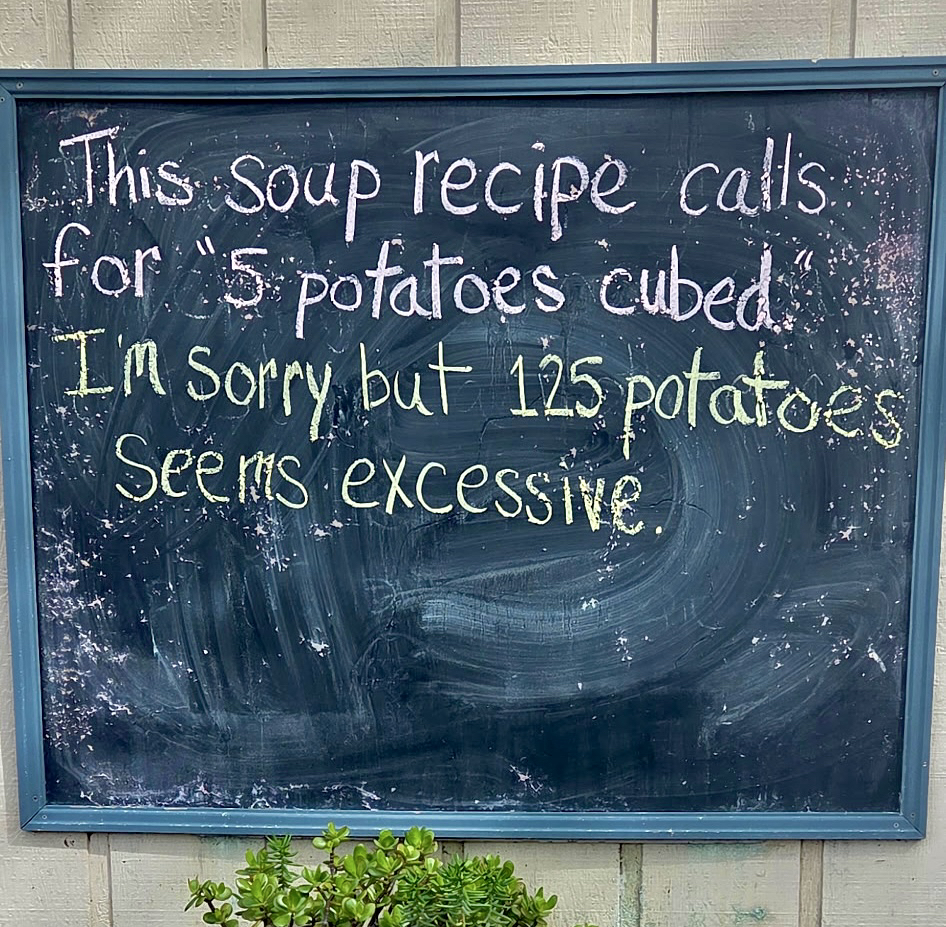 This soup recipe calls
for "5 potatoes cubed."
I'm sorry but 125 potatoes
seems excessive.